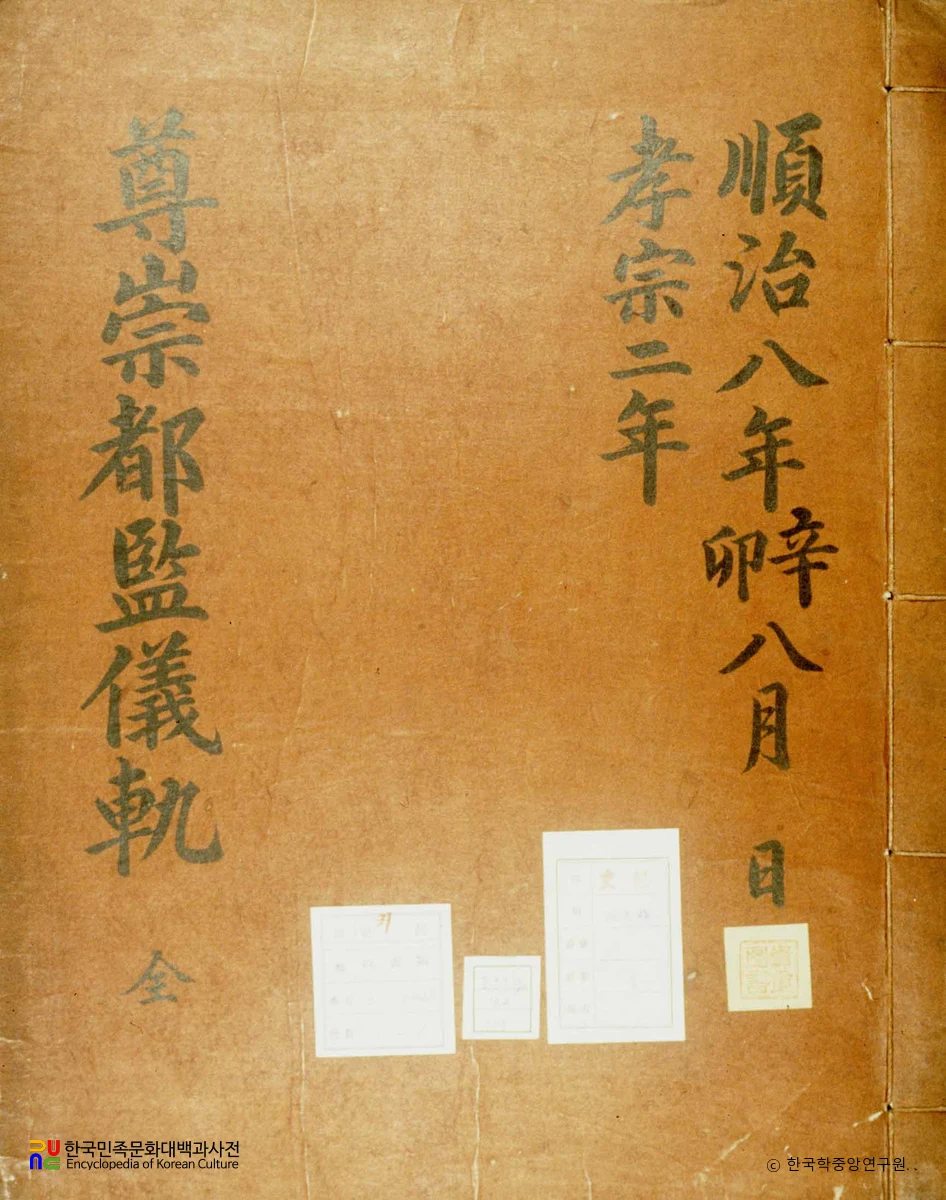 順治八年辛卯八月 日
孝宗二年
尊崇都監儀軌 全
한국민족문화대백과사전
Encyclopedia of Korean Culture
ⓒ 한국학중앙연구원